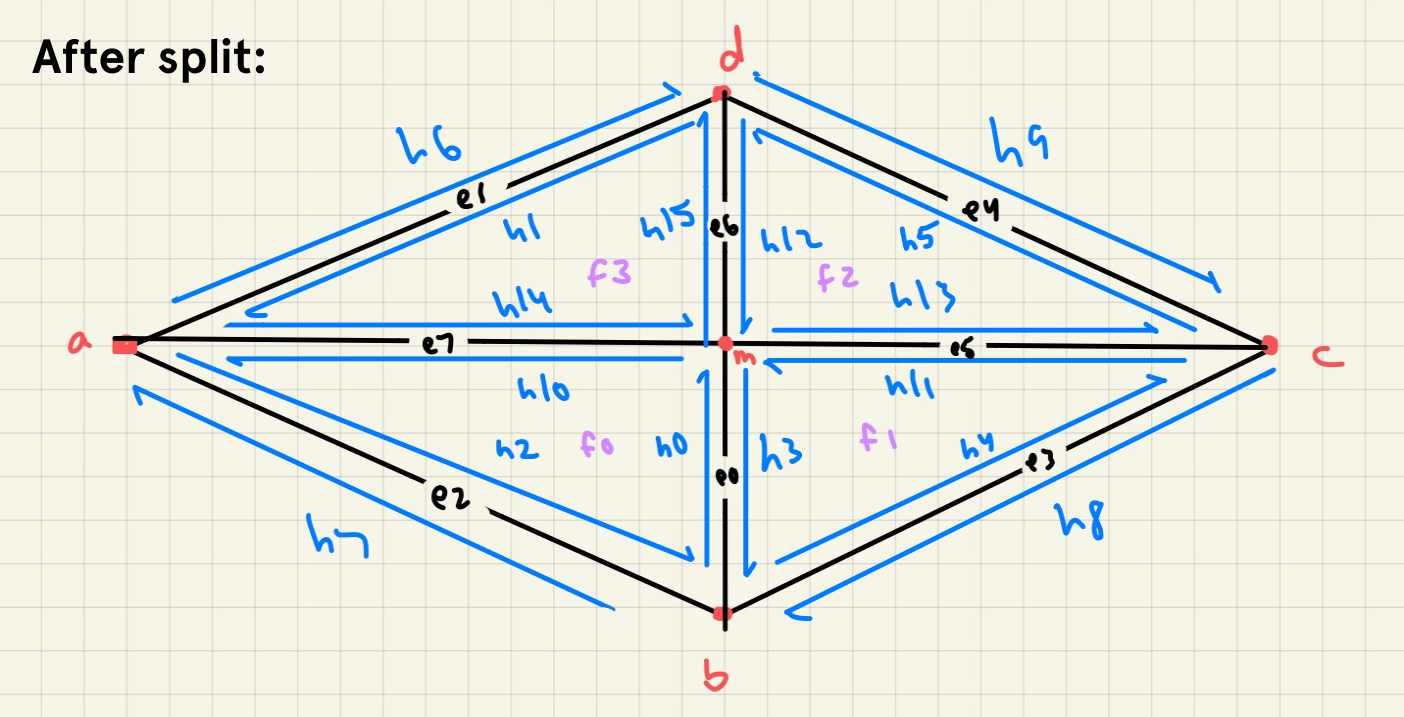 After split:
d
h6
h9
e1
e4
h1
h15
e6
h12
h5
f3
f2
h14
h13
a
e7
m
e5
c
h10
h11
h2
f0
h0
h3
f1
h4
e3
e2
e0
h7
h8
b